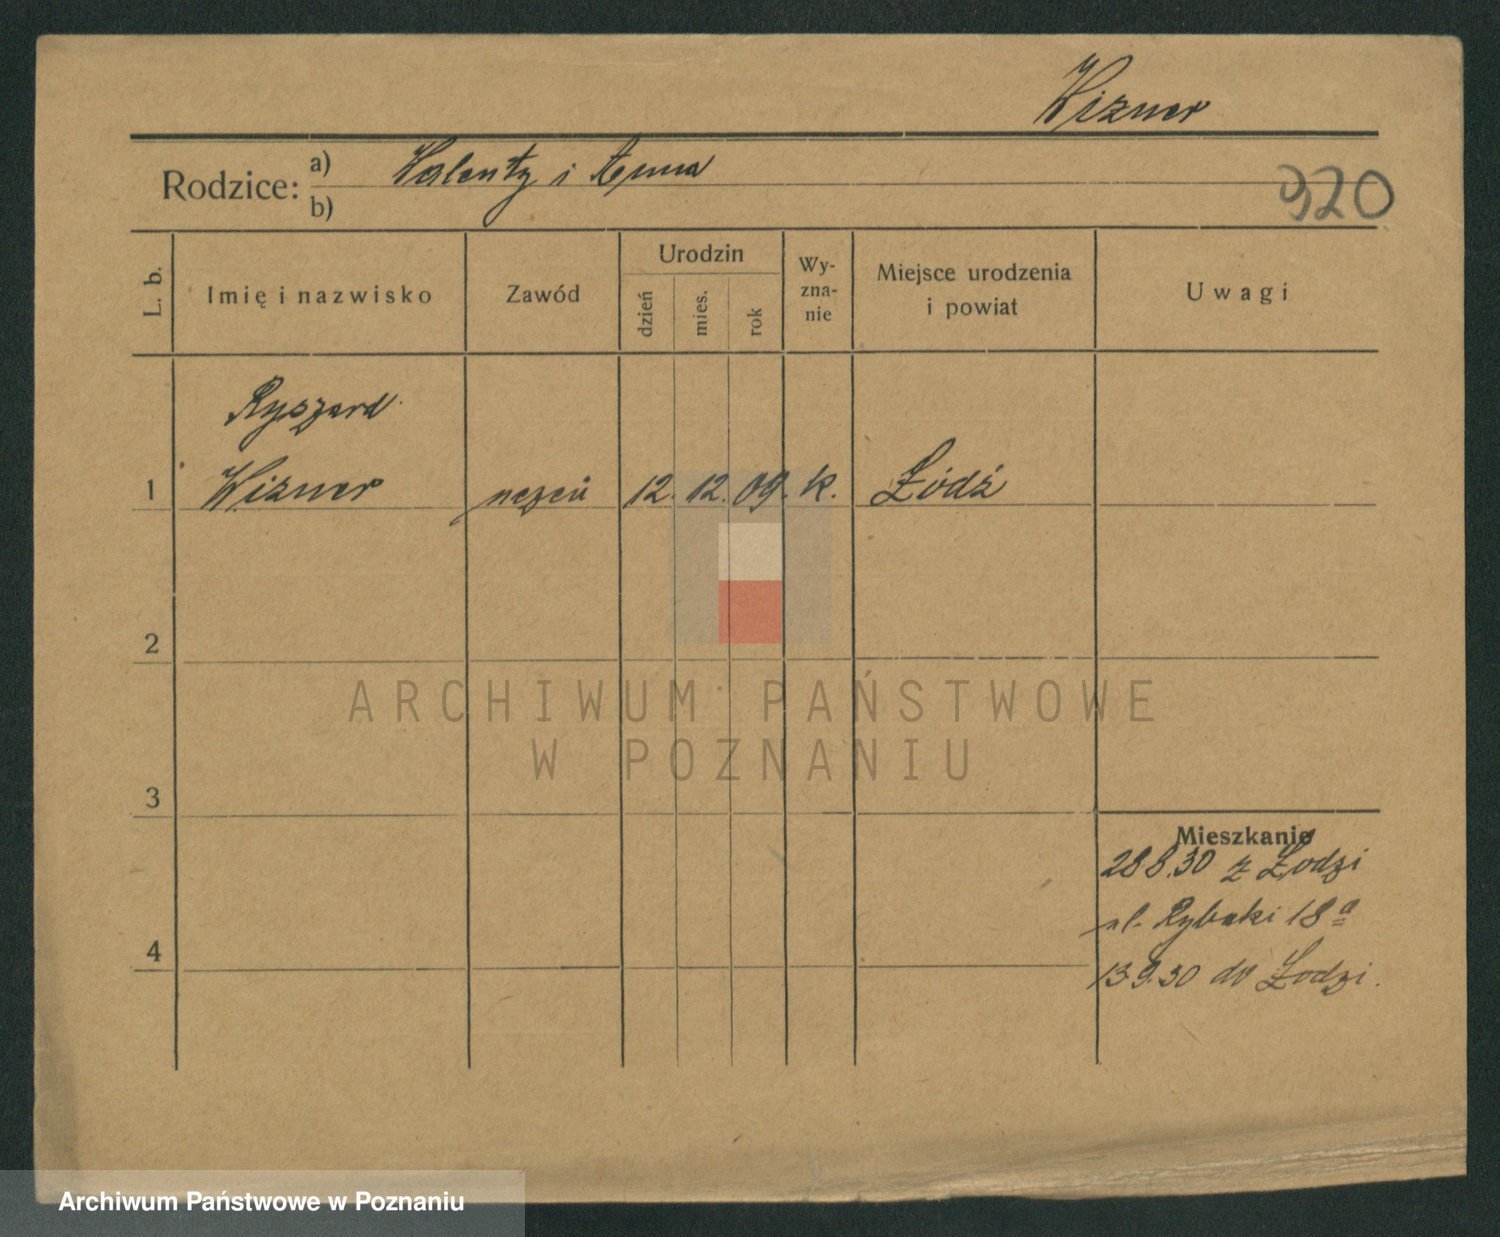 Wizner
Rodzice: a) Walenty i Anna
b)
920
L. b.
Imię i nazwisko
Zawód
Urodzin
dzień
mies.
rok
Wy-
zna-
nie
Miejsce urodzenia
i powiat
Uwagi
Ryszard
1 Wizner uczeń 12. 12. 09. k. Łódź
2
3
4
Mieszkanie
28.8.30 z Łodzi
ul. Rybaki 18a
13.9.30 do Łodzi.
ARCHIWUM PAŃSTWOWE
W POZNANIU
Archiwum Państwowe w Poznaniu